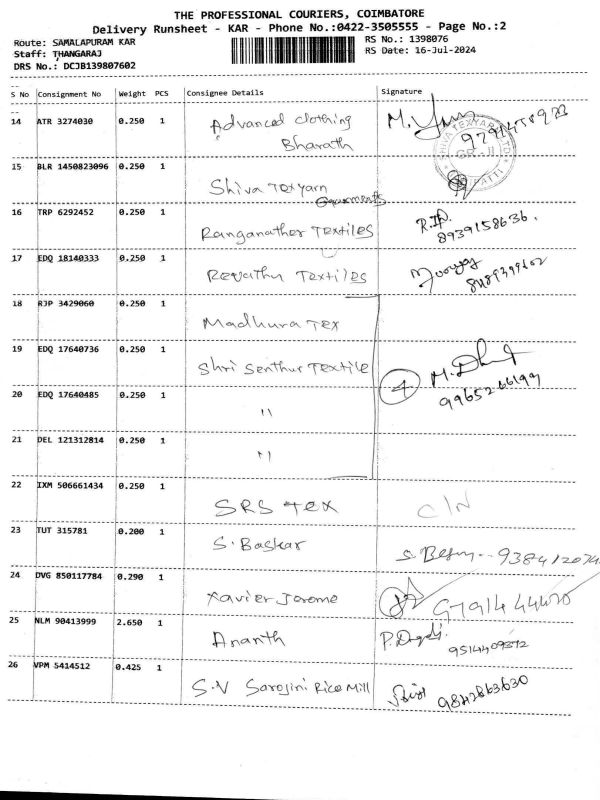 THE PROFESSIONAL COURIERS, COIMBATORE
Delivery Runsheet - KAR - Phone No.:0422-3505555 - Page No.:2
Route: SAMALAPURAM KAR RS No.: 1398076
Staff: THANGARAJ RS Date: 16-Jul-2024
DRS No.: DCJB139807602
S No Consignment No Weight PCS Consignee Details Signature
14 ATR 3274030 0.250 1 Advanced clothing
Bharath
15 BLR 1450823096 0.250 1 Shiva Texyarn
Garments
16 TRP 6292452 0.250 1 Ranganather Textiles 8939158636.
17 EDQ 18140333 0.250 1 Revathy Textiles
18 RJP 3429060 0.250 1 Madhura Tex
19 EDQ 17640736 0.250 1 Shri Senthur Textile 4 M.
20 EDQ 17640485 0.250 1 "
21 DEL 121312814 0.250 1 "
22 IXM 506661434 0.250 1 SRS Tex C/N
23 TUT 315781 0.200 1 S. Baskar
24 DVG 850117784 0.290 1 Xavier Jerome
25 NLM 90413999 2.650 1 Ananth
26 VPM 5414512 0.425 1 S.V Sarojini Rice Mill 9842863630